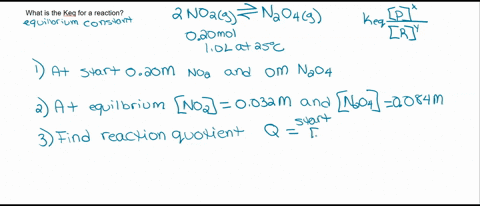 What is the Keq for a reaction?
equilibrium constant
2NO₂(g) ⇌ N₂O₄(g)
0.20mol
1.0L at 25°C
Keq [P]ˣ
[R]ʸ
1) At start 0.20M NO₂ and 0M N₂O₄
2) At equilbrium [NO₂] = 0.032M and [N₂O₄] = 0.084M
3) Find reaction quotient Q = start [